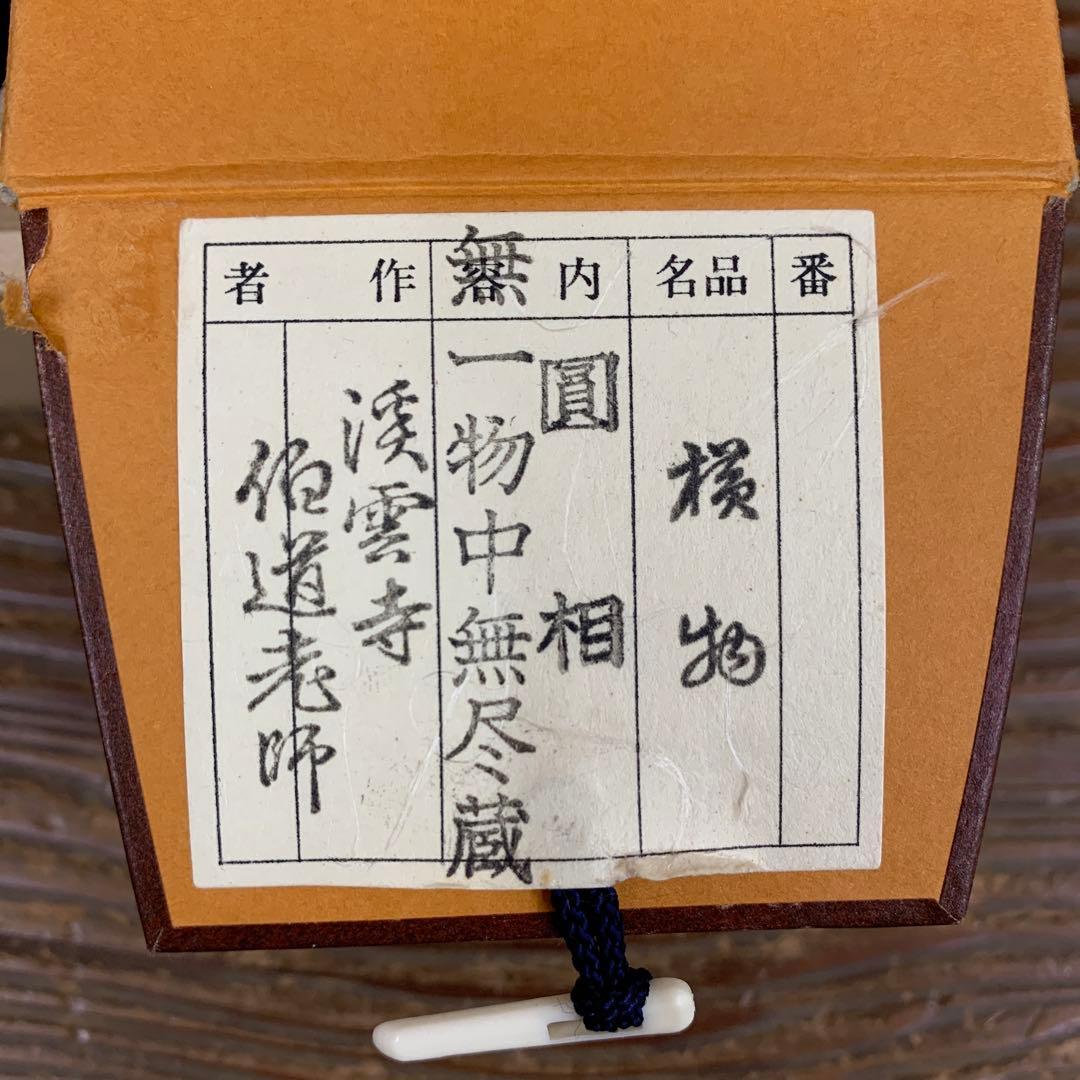 番
品名
横物
内容
圓相
無一物中無尽蔵
作者
渓雲寺
伯道老師